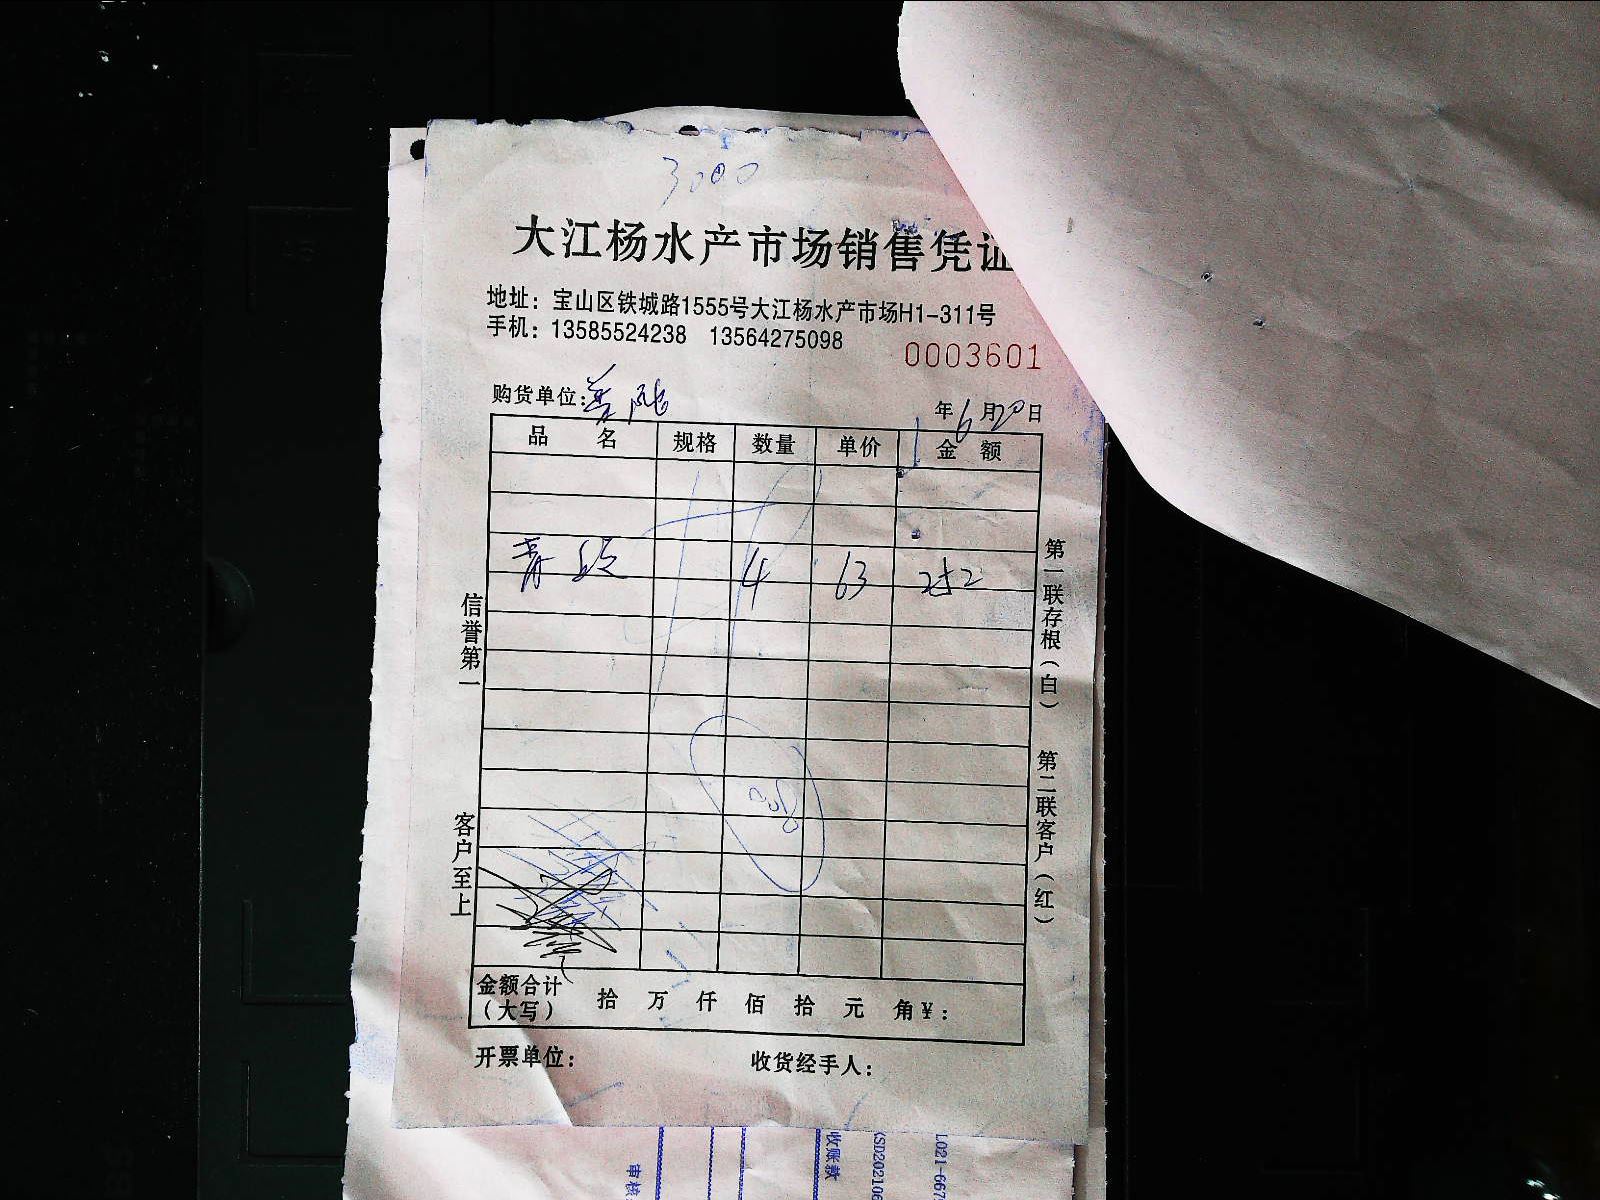 3000
大江杨水产市场销售凭证
地址：宝山区铁城路1555号大江杨水产市场H1-311号
手机：13585524238 13564275098
0003601
购货单位：普陀
年6月20日
品 名 规格 数量 单价 金 额
青 4 63 252
信誉第一
客户至上
第一联存根（白）
第二联客户（红）
金额合计（大写） 拾 万 仟 佰 拾 元 角¥：
开票单位： 收货经手人：
审核
收账款
L021-667